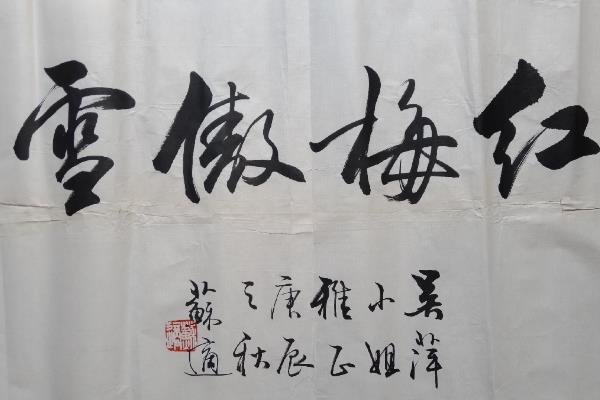 红梅傲雪
吴萍
小姐
雅正
庚辰
之秋
蘇適